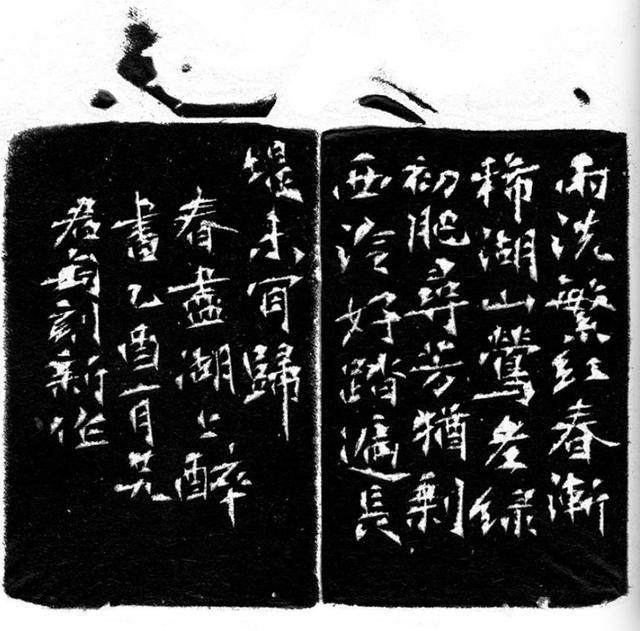 雨洗繁紅春漸
稀湖山鶯老綠
初肥尋芳猶剩
西泠好踏遍長
堤未肎歸
春盡湖上醉
書乙酉
君匋刻新作